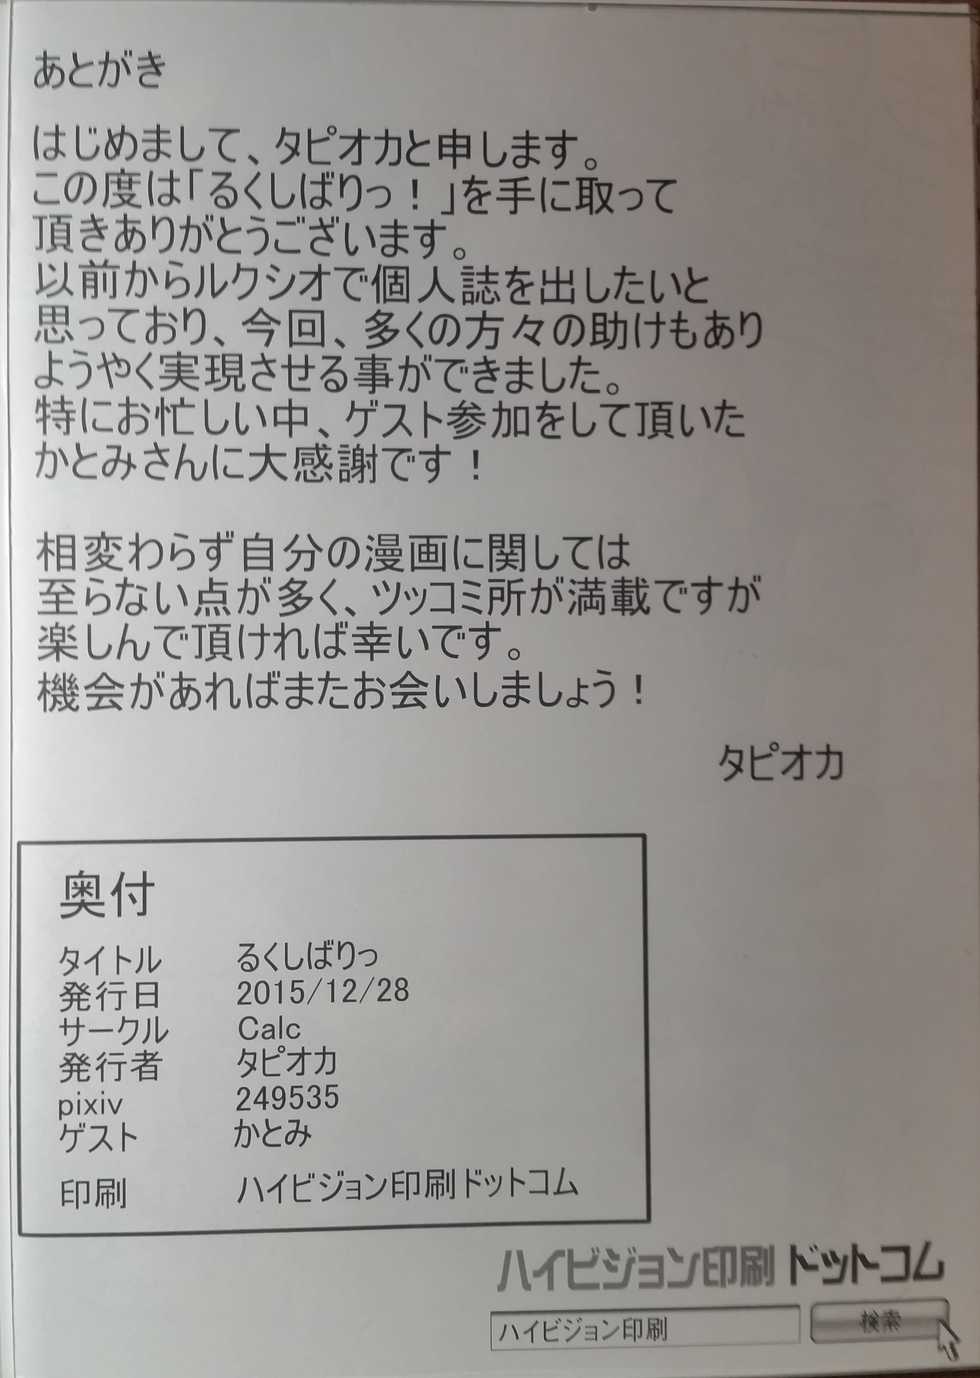 あとがき
はじめまして、タピオカと申します。
この度は「るくしばりっ！」を手に取って
頂きありがとうございます。
以前からルクシオで個人誌を出したいと
思っており、今回、多くの方々の助けもあり
ようやく実現させる事ができました。
特にお忙しい中、ゲスト参加をして頂いた
かとみさんに大感謝です！
相変わらず自分の漫画に関しては
至らない点が多く、ツッコミ所が満載ですが
楽しんで頂ければ幸いです。
機会があればまたお会いしましょう！
タピオカ
奥付
タイトル るくしばりっ
発行日 2015/12/28
サークル Calc
発行者 タピオカ
pixiv 249535
ゲスト かとみ
印刷 ハイビジョン印刷ドットコム
ハイビジョン印刷ドットコム
ハイビジョン印刷 検索